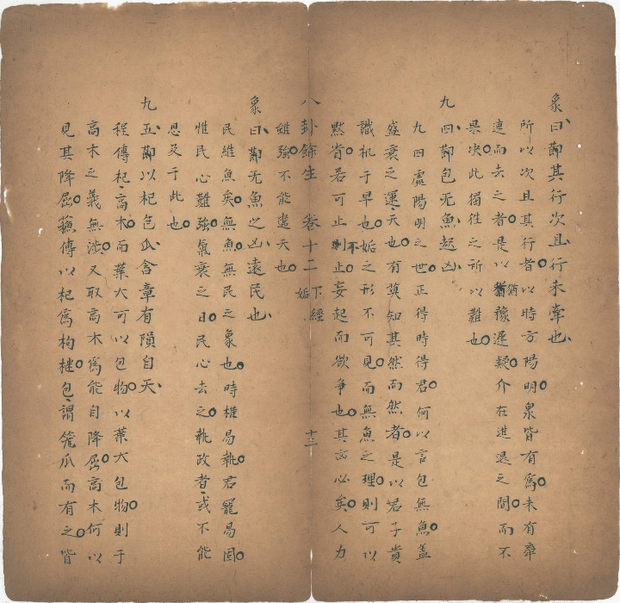 象曰鄣其行次且行未牽也
所以次且其行者以時方陽明衆皆有爲未有牽
連而去之者是以猶豫遲疑介在進退之間而不
果決此獨往之所以難也
九四鄣包无魚起凶
九四處陽明之世正得時得君何以言包無魚蓋
盛衰之運天也有莫知其然而然者是以君子貴
識机于早也姤之形不可見而無魚之理則可以
黙省若可止不止妄起而欲爭也其凶必矣人力
雖強不能違天也
八卦餘生 卷十二 下經 姤 十二
象曰鄣无魚之凶遠民也
民維魚矣無魚無民之象也時權易執君寵易固
惟民心難強氣衰之日民心去之執政者或不能
思及于此也
九五鄣以杞包瓜含章有隕自天
程傳杞高木而葉大可以包物以葉大包物則于
高木之義無涉又取高木爲能自降屈高木何以
見其降屈蘓傳以杞爲枸檵包謂籠瓜而有之皆